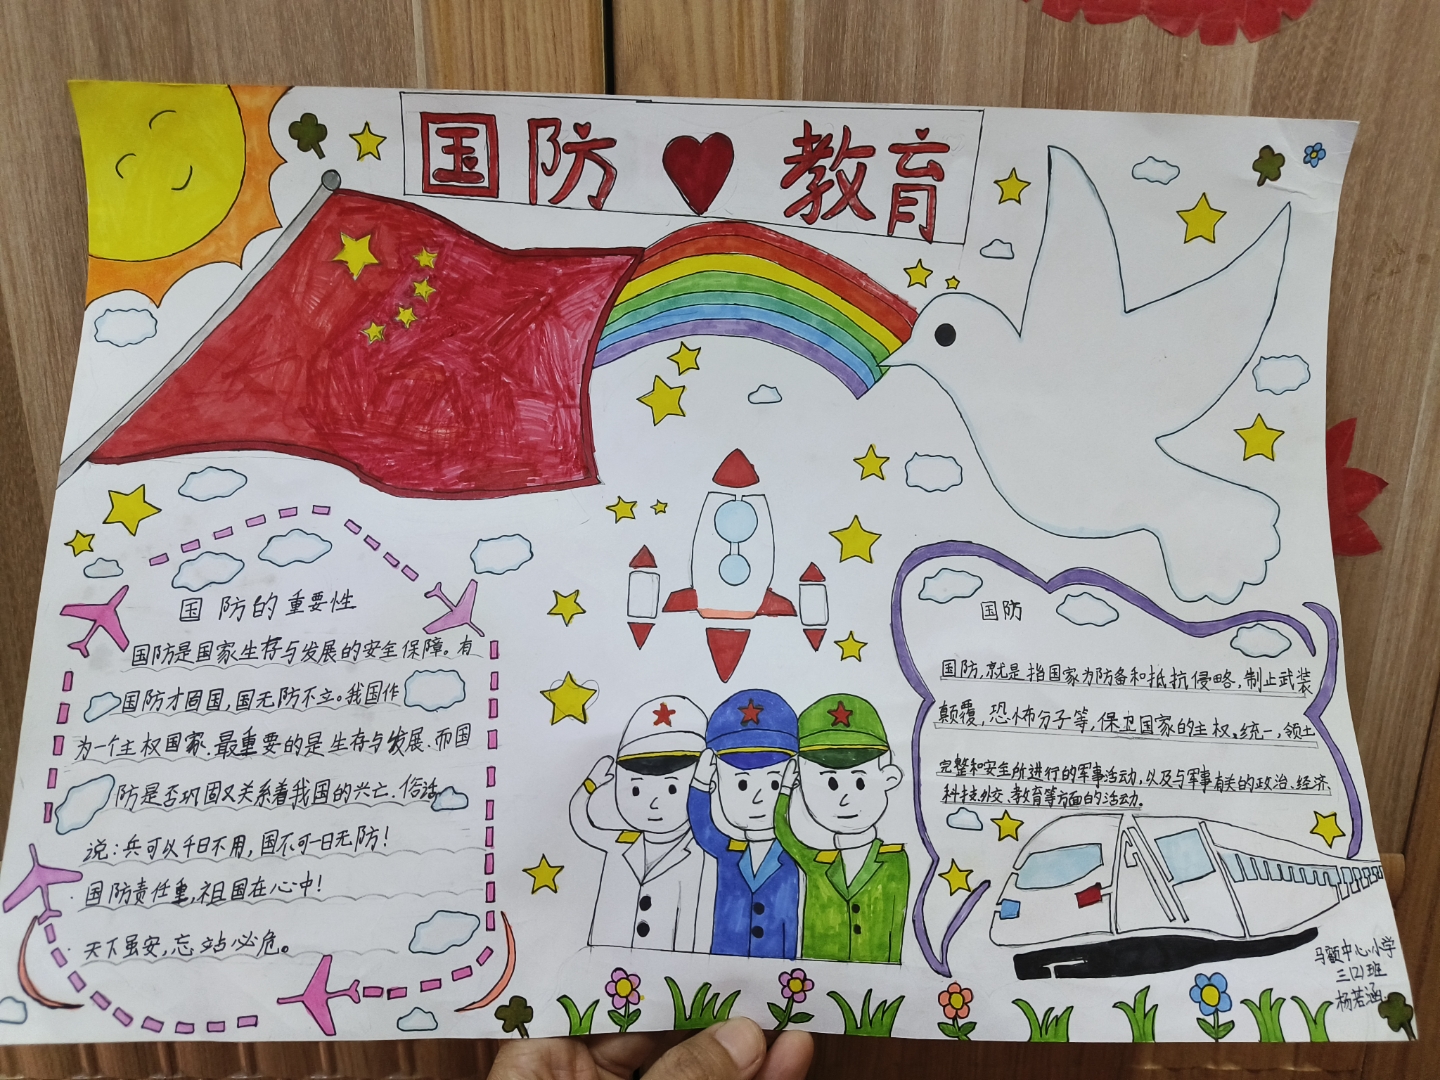 国防 教育
国防的重要性
国防是国家生存与发展的安全保障。有
国防才同国,国无防不立。我国作
为一个主权国家.最重要的是生存与发展.而国
防是否巩固又关系着我国的兴亡.俗话
说:兵可以千日不用,国不可一日无防!
国防责任重,祖国在心中!
天下虽安,忘战必危。
国防
国防,就是指国家为防备和抵抗侵略,制止武装
颠覆,恐怖分子等,保卫国家的主权、统一,领土
完整和安全所进行的军事活动,以及与军事有关的政治、经济
科技、外交、教育等方面的活动.
中心小学
三(2)班
杨若涵